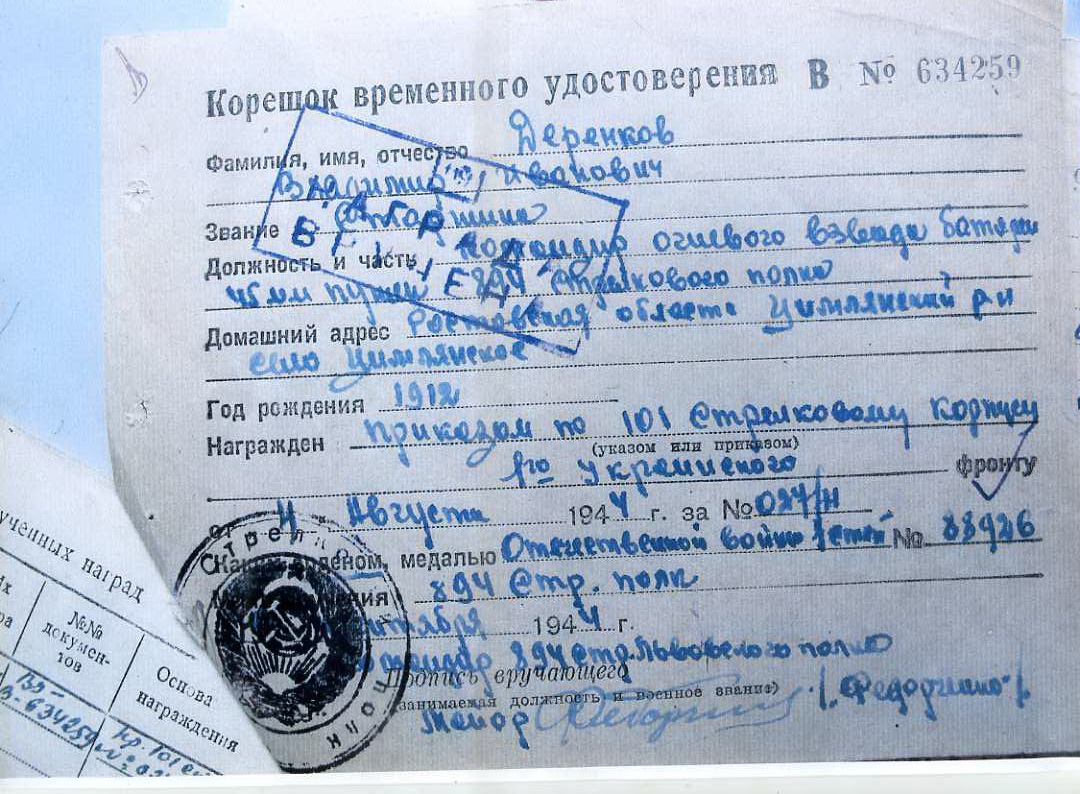 Корешок временного удостоверения В № 634259
Фамилия, имя, отчество Деренков
Владимир Иванович
Звание Старшина
Должность и часть Командир огневого взвода батареи
45 мм пушек 894 стрелкового полка
Домашний адрес Ростовская область Цимлянский р-н
село Цимлянское
Год рождения 1912
Награжден приказом по 101 стрелковому корпусу
(указом или приказом)
1го Украинского фронту
от 4 Августа 1944 г. за № 027/н
орденом, медалью Отечественной войны 1 степ № 88926
894 Стр. полк
1944 г.
894 стр Львовского полка
Подпись вручающего
(занимаемая должность и военное звание)
Майор
Стрелк
полк
ученных наград
№№ документов
Основа
награждения
В 634259
пр. 101